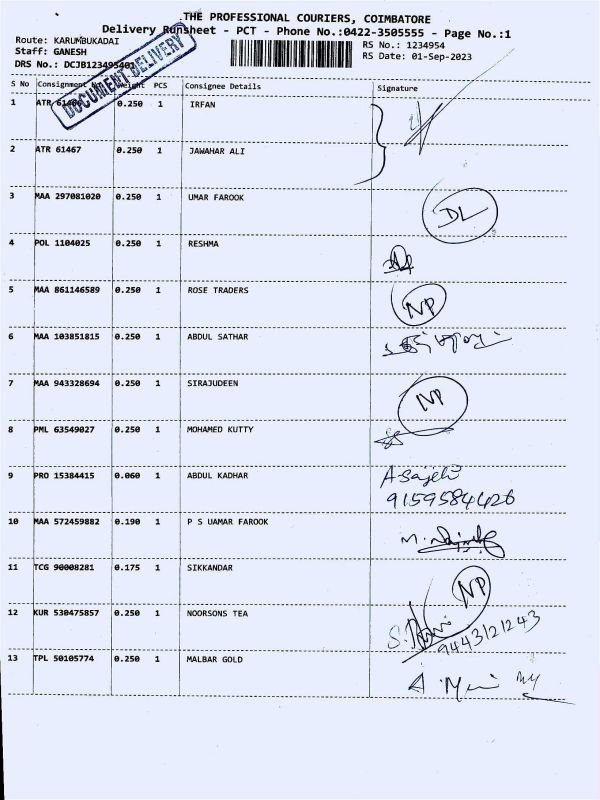 THE PROFESSIONAL COURIERS, COIMBATORE
Delivery Runsheet - PCT - Phone No.:0422-3505555 - Page No.:1
Route: KARUMBUKADAI
RS No.: 1234954
Staff: GANESH
RS Date: 01-Sep-2023
DRS No.: DCJB123495401
DOCUMENT DELIVERY
S No Consignment No Weight PCS Consignee Details Signature
1 ATR 0.250 1 IRFAN
2 ATR 61467 0.250 1 JAWAHAR ALI
3 MAA 297081020 0.250 1 UMAR FAROOK
DL
4 POL 1104025 0.250 1 RESHMA
5 MAA 861146589 0.250 1 ROSE TRADERS
NP
6 MAA 103851815 0.250 1 ABDUL SATHAR
7 MAA 943328694 0.250 1 SIRAJUDEEN
NP
8 PML 63549027 0.250 1 MOHAMED KUTTY
9 PRO 15384415 0.060 1 ABDUL KADHAR
9159584426
10 MAA 572459882 0.190 1 P S UAMAR FAROOK
11 TCG 90008281 0.175 1 SIKKANDAR
NP
12 KUR 530475857 0.250 1 NOORSONS TEA
9443121243
13 TPL 50105774 0.250 1 MALBAR GOLD